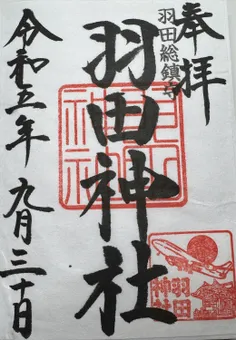 奉拝
羽田総鎮守
羽田神社
令和五年 九月三十日
羽田
神社